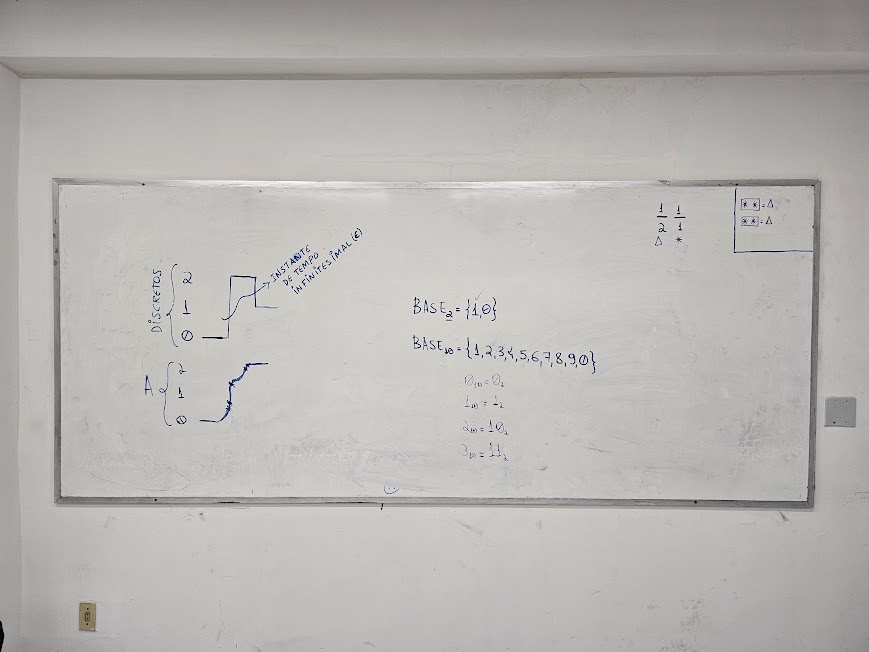 DISCRETOS
2
1
0
INSTANTE
DE TEMPO
INFINITESIMAL (ε)
A
2
1
0
BASE₂ = {1,0}
BASE₁₀ = {1,2,3,4,5,6,7,8,9,0}
0₁₀ = 0₂
1₁₀ = 1₂
2₁₀ = 10₂
3₁₀ = 11₂
1 1
2 1
Δ *
** = Δ
** = Δ